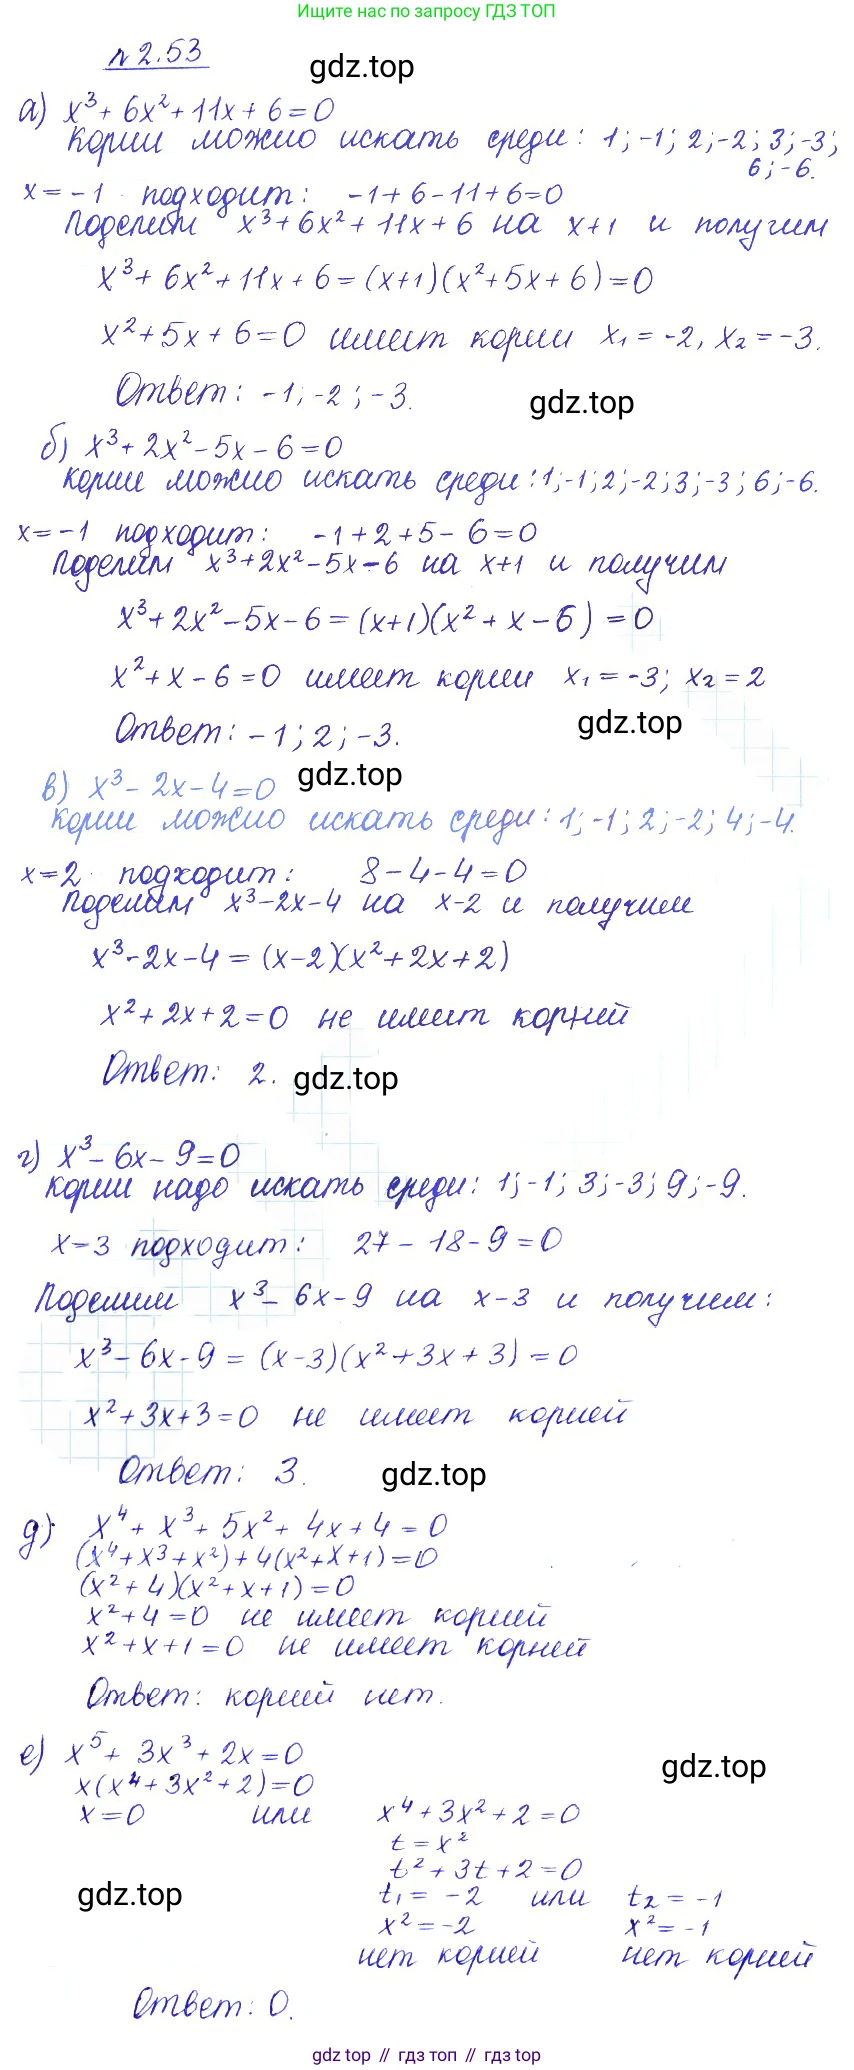 Ищите нас по запросу ГДЗ ТОП
№2.53
gdz.top
а) x³+6x²+11x+6=0
Корни можно искать среди: 1;-1; 2;-2; 3;-3;
6;-6.
x=-1 подходит: -1+6-11+6=0
Поделим x³+6x²+11x+6 на x+1 и получим
x³+6x²+11x+6=(x+1)(x²+5x+6)=0
x²+5x+6=0 имеет корни x₁=-2, x₂=-3.
Ответ: -1;-2;-3.
gdz.top
б) x³+2x²-5x-6=0
Корни можно искать среди: 1;-1;2;-2;3;-3;6;-6.
x=-1 подходит: -1+2+5-6=0
Поделим x³+2x²-5x-6 на x+1 и получим
x³+2x²-5x-6=(x+1)(x²+x-6)=0
x²+x-6=0 имеет корни x₁=-3; x₂=2
Ответ: -1; 2; -3.
gdz.top
в) x³-2x-4=0
gdz.top
Корни можно искать среди: 1;-1; 2;-2; 4;-4.
x=2 подходит: 8-4-4=0
Поделим x³-2x-4 на x-2 и получим
x³-2x-4=(x-2)(x²+2x+2)
x²+2x+2=0 не имеет корней
Ответ: 2.
gdz.top
г) x³-6x-9=0
Корни надо искать среди: 1;-1; 3;-3; 9;-9.
x=3 подходит: 27-18-9=0
Поделим x³-6x-9 на x-3 и получим:
x³-6x-9=(x-3)(x²+3x+3)=0
x²+3x+3=0 не имеет корней
Ответ: 3.
gdz.top
д) x⁴+x³+5x²+4x+4=0
(x⁴+x³+x²)+4(x²+x+1)=0
(x²+4)(x²+x+1)=0
x²+4=0 не имеет корней
x²+x+1=0 не имеет корней
Ответ: корней нет.
е) x⁵+3x³+2x=0
gdz.top
x(x⁴+3x²+2)=0
x=0 или x⁴+3x²+2=0
t=x²
t²+3t+2=0
gdz.top
t₁=-2 или t₂=-1
x²=-2 x²=-1
нет корней нет корней
Ответ: 0.
gdz top // гдз топ // gdz top